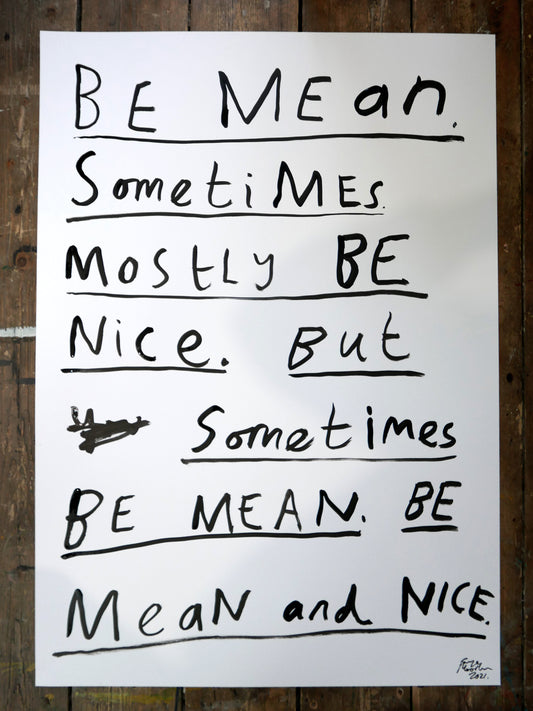 BE MEan.
SometiMEs.
MOStLy BE
Nice. But
Sometimes
BE MEAN. BE
MeaN and NICE.
2021.